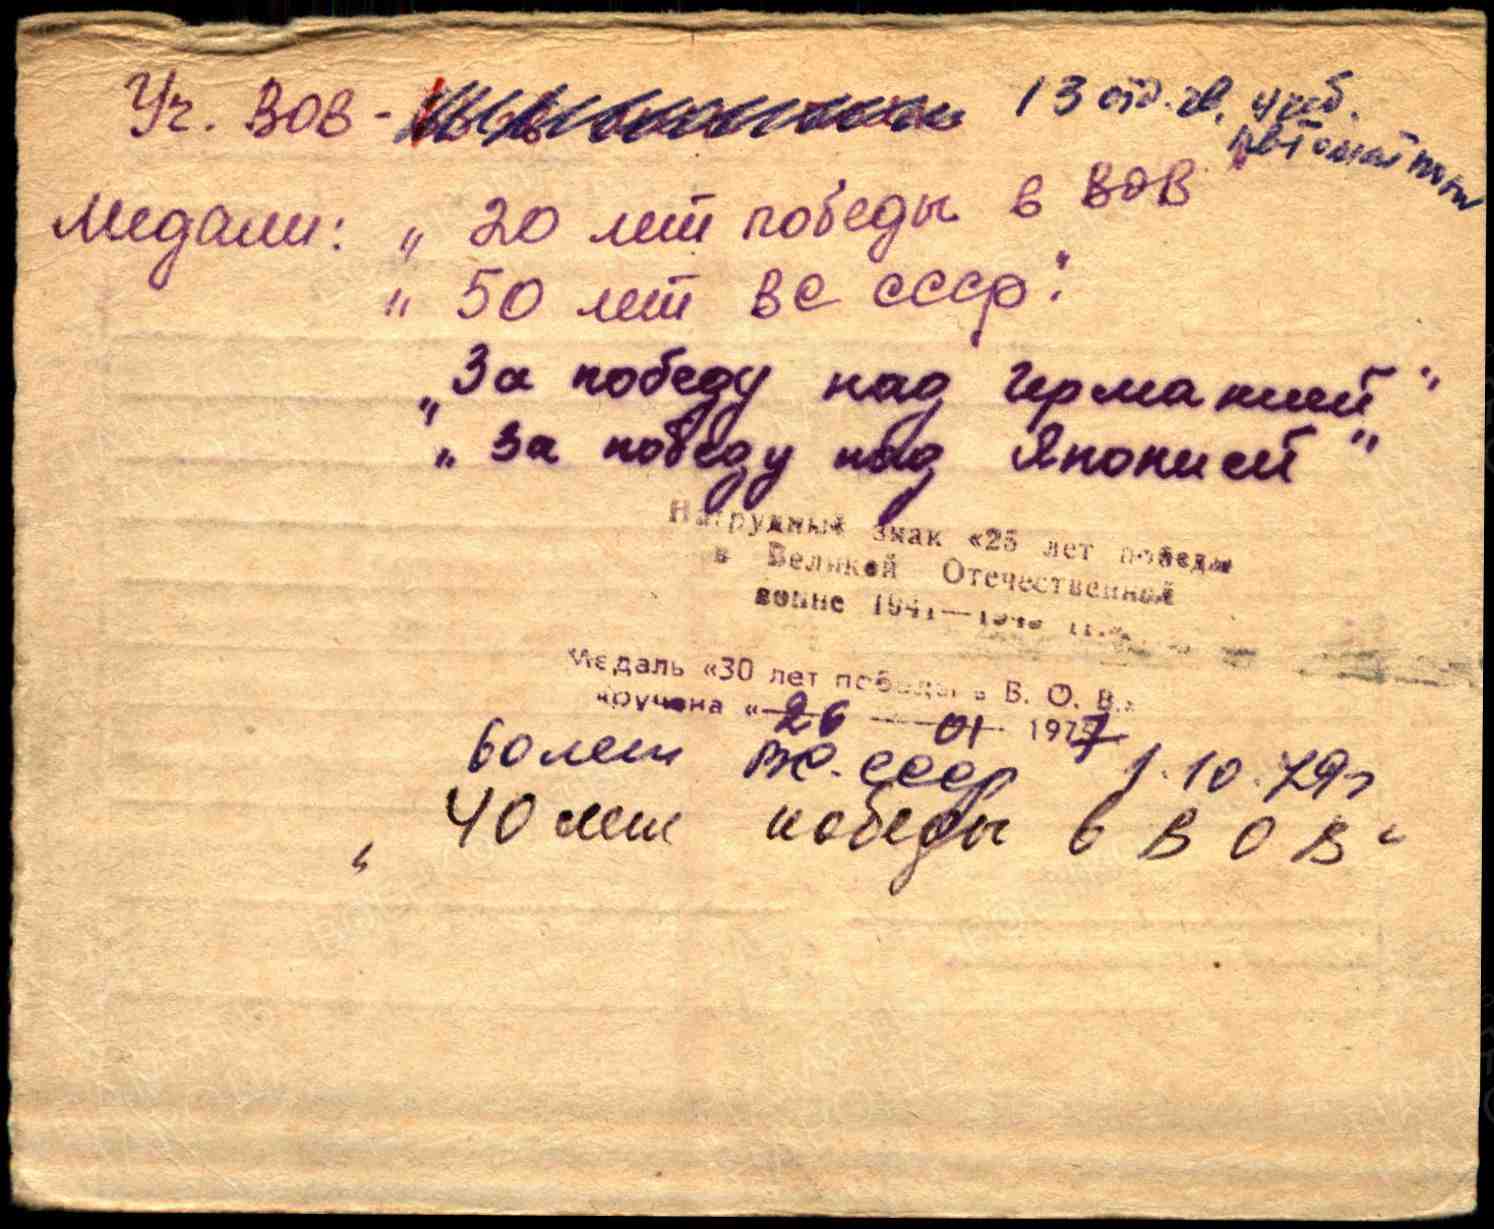 Уч. ВОВ - 13 отд. гв. учеб.
автоматчик
Медали: „ 20 лет победы в ВОВ "
„ 50 лет ВС СССР".
„ За победу над Германией "
„ За победу над Японией "
Нагрудный знак «25 лет победы
в Великой Отечественной
войне 1941—1945 гг.»
Медаль «30 лет победы в В. О. В.»
вручена « 26 01 1977
60 лет ВС. СССР 1.10.79г
„ 40 лет победы в ВОВ "